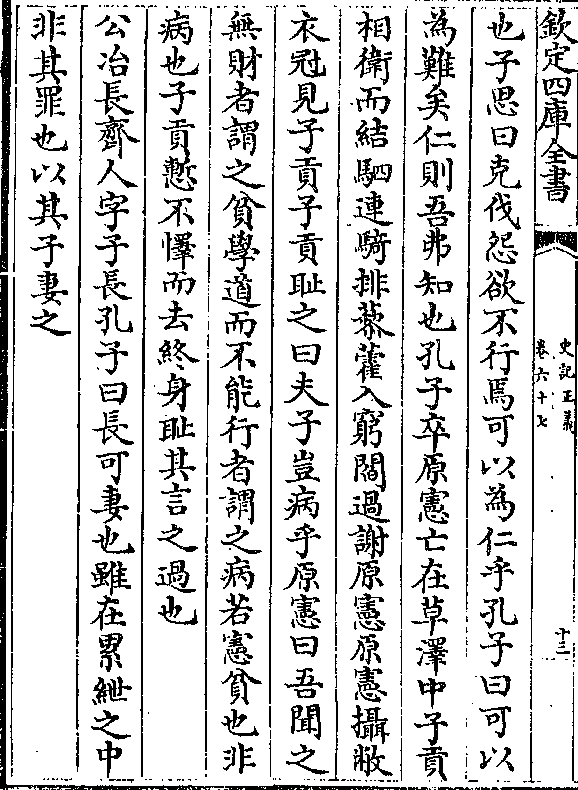 欽定四庫全書
史記正義
卷六十七
十三
也子思曰克伐怨欲不行焉可以為仁乎孔子曰可以
為難矣仁則吾弗知也孔子卒原憲亡在草澤中子貢
相衛而結駟連騎排藜藿入窮閻過謝原憲原憲攝敝
衣冠見子貢子貢耻之曰夫子豈病乎原憲曰吾聞之
無財者謂之貧學道而不能行者謂之病若憲貧也非
病也子貢慙不懌而去終身耻其言之過也
公冶長齊人字子長孔子曰長可妻也雖在累紲之中
非其罪也以其子妻之